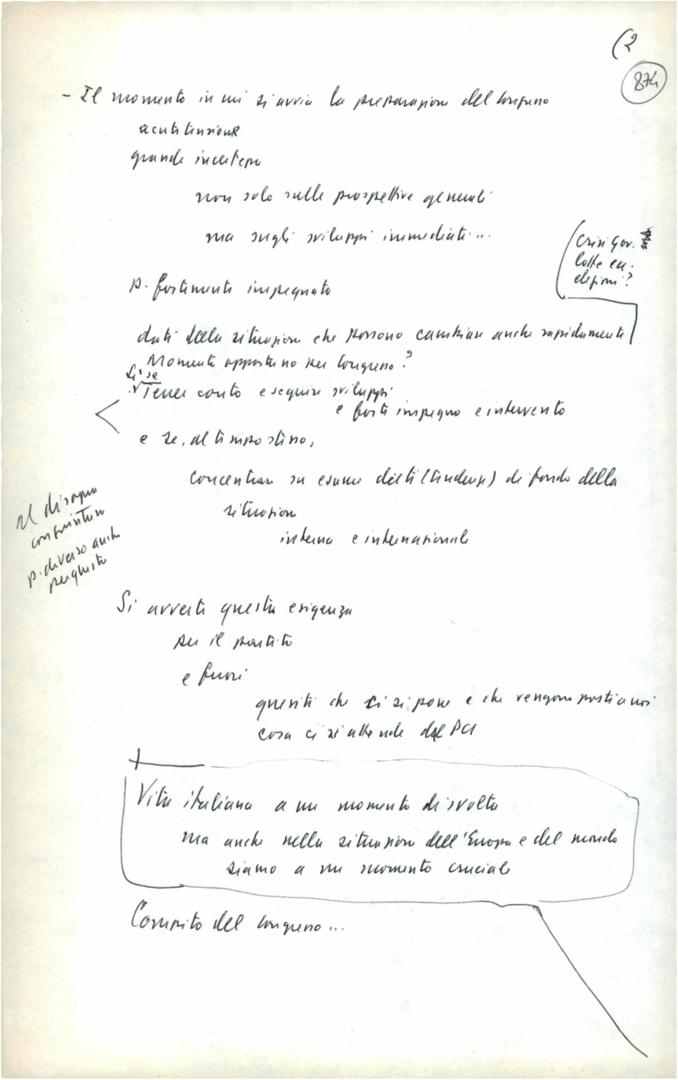 (2
874
- Il momento in cui si avvia la preparazione del congresso
acuta tensione
grande incertezza
non solo sulle prospettive generali
ma sugli sviluppi immediati...
Crisi Gov.
lotte
elezioni?
p. fortemente impegnato
dati della situazione che possono cambiare anche rapidamente
Momento opportuno per congresso?
Sì se
Tener conto e seguire sviluppi
e forte impegno e intervento
e se, al tempo stesso,
concentrare su esame dati (tendenze) di fondo della
situazione
interna e internazionale
Il disegno
congiuntura
p. diverso anche
per questo
Si avverte questa esigenza
per il partito
e fuori
quesiti che ci si pone e che vengono posti a noi
cosa ci si attende dal PCI
Vita italiana a un momento di svolta
ma anche nella situazione dell'Europa e del mondo
siamo a un momento cruciale
Compito del congresso...